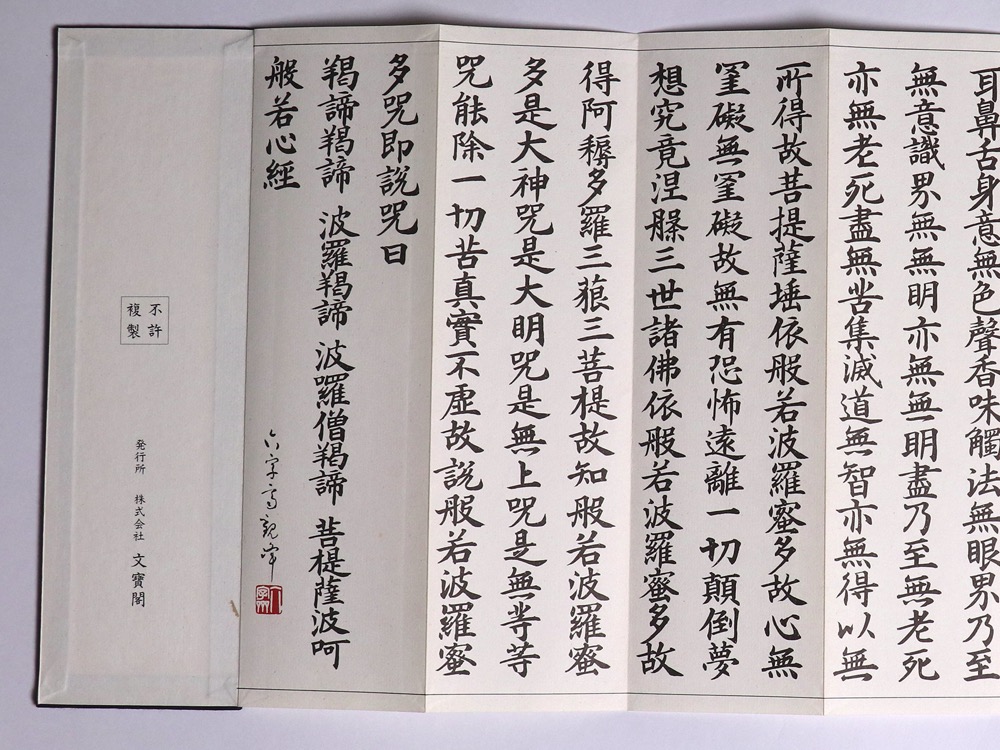 耳鼻舌身意無色聲香味觸法無眼界乃至
無意識界無無明亦無無明盡乃至無老死
亦無老死盡無苦集滅道無智亦無得以無
所得故菩提薩埵依般若波羅蜜多故心無
罣礙無罣礙故無有恐怖遠離一切顛倒夢
想究竟涅槃三世諸佛依般若波羅蜜多故
得阿耨多羅三藐三菩提故知般若波羅蜜
多是大神咒是大明咒是無上咒是無等等
咒能除一切苦真實不虛故說般若波羅蜜
多咒即說咒曰
羯諦羯諦 波羅羯諦 波囉僧羯諦 菩提薩波呵
般若心經
不許
複製
発行所 株式会社 文寶閣